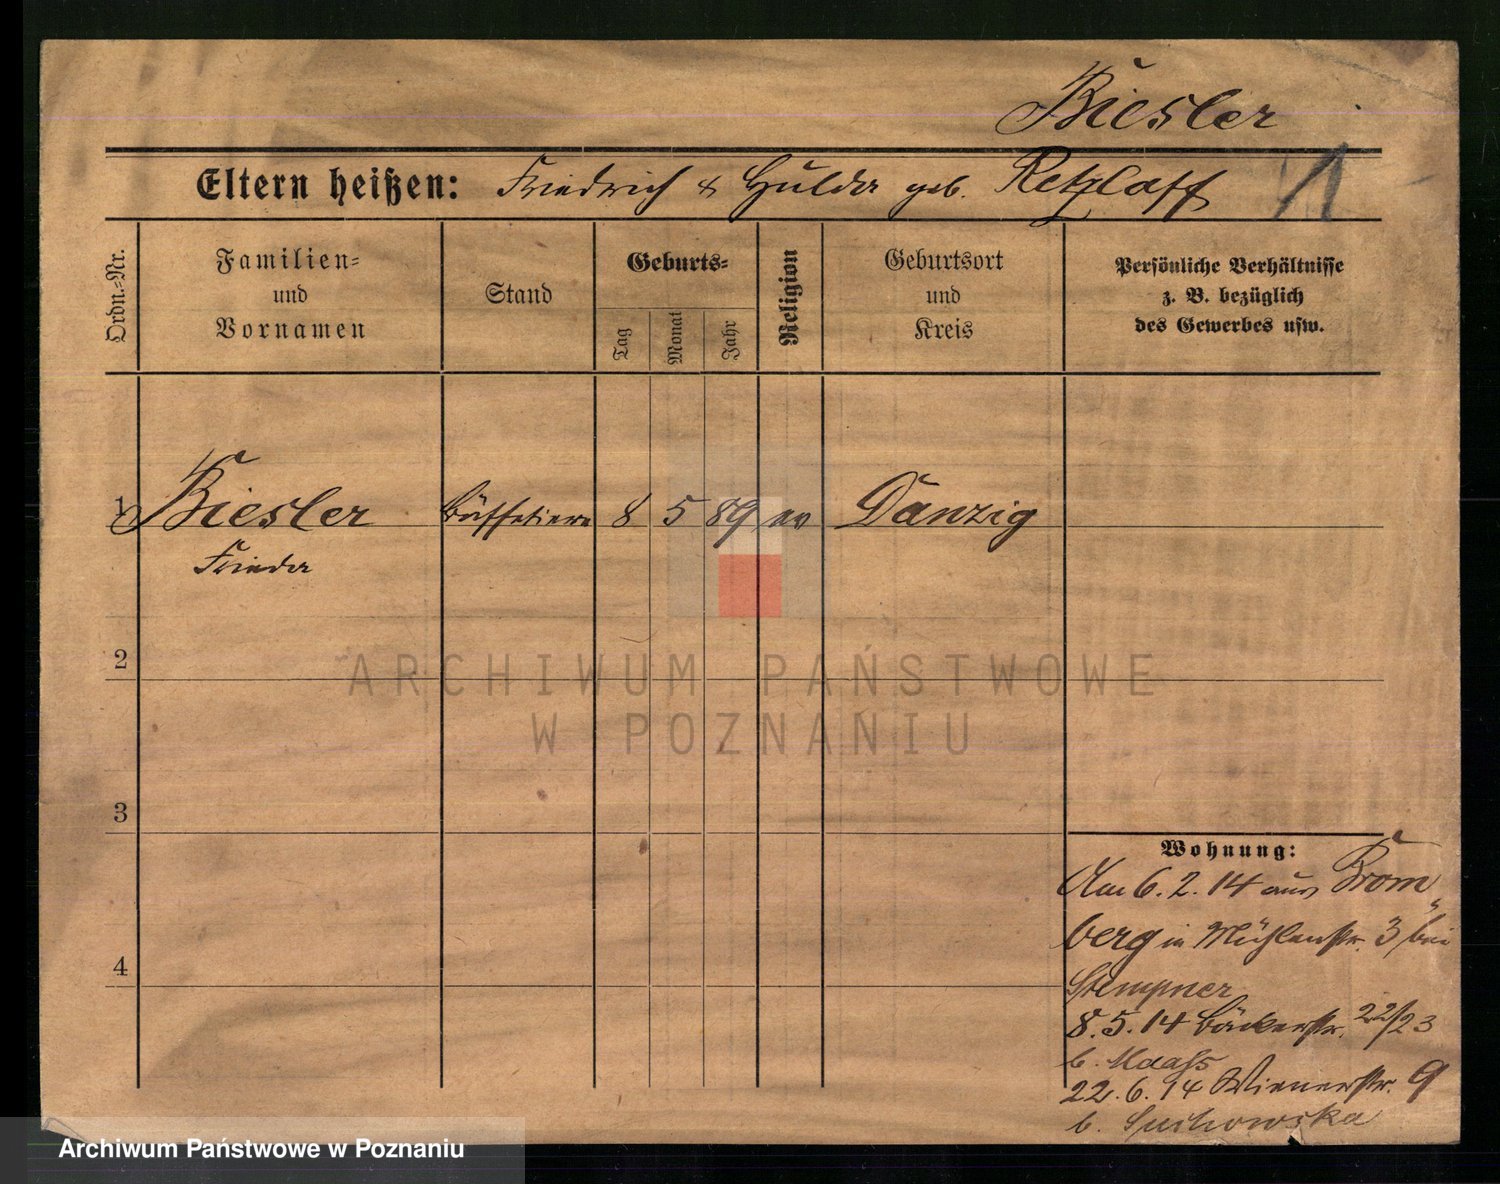 Biesler
Eltern heißen: Friedrich & Hulda geb. Retzlaff
1
Ordn.-Nr.
Familien-
und
Vornamen
Stand
Geburts-
Tag
Monat
Jahr
Religion
Geburtsort
und
Kreis
Persönliche Verhältnisse
z. B. bezüglich
des Gewerbes usw.
1 Biesler Büffetiere 8 5 89 ev Danzig
Frieda
2
ARCHIWUM PAŃSTWOWE
W POZNANIU
3
4
Wohnung:
Am 6.2.14 aus Brom
berg in Mühlenstr. 3 bei
Stempner
8.5.14 Bäckerstr. 22/23
b. Maaß
22.6.14 Wienerstr. 9
b. Suchowska
Archiwum Państwowe w Poznaniu